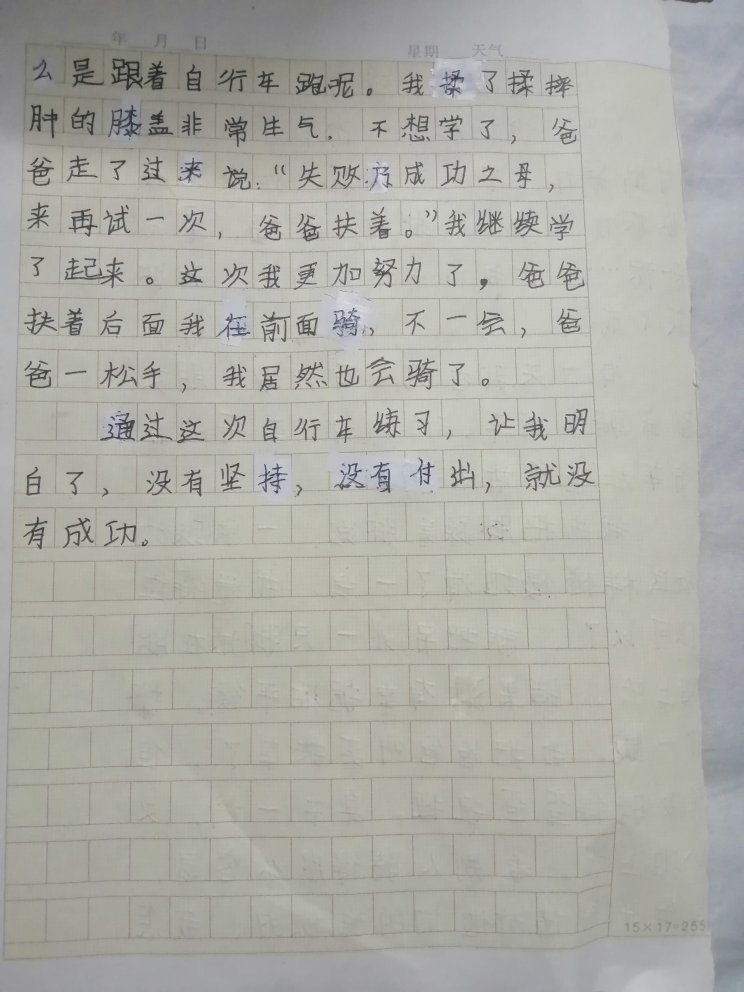 年 月 日 星期 天气
么是跟着自行车跑呢。我揉了揉摔
肿的膝盖非常生气．不想学了，爸
爸走了过来说：“失败乃成功之母，
来再试一次，爸爸扶着。”我继续学
了起来。这次我更加努力了，爸爸
扶着后面我在前面骑，不一会，爸
爸一松手，我居然也会骑了。
通过这次自行车练习，让我明
白了，没有坚持，没有付出，就没
有成功。
15×17=255